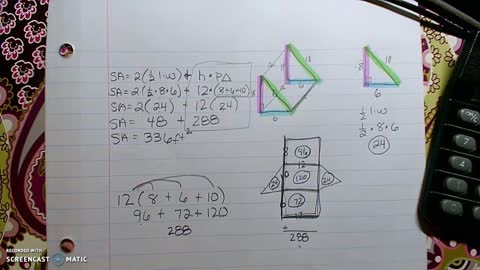 SA = 2(½ l·w) + h · P△
SA = 2(½·8·6) + 12·(8+6+10)
SA = 2(24) + 12(24)
SA = 48 + 288
SA = 336 ft²
12(8 + 6 + 10)
96 + 72 + 120
288
10
8
6
6
8
10
6
½ l·w
½ · 8 · 6
24
96
12
120
24
24
12
72
12
+
288
RECORDED WITH
SCREENCAST MATIC